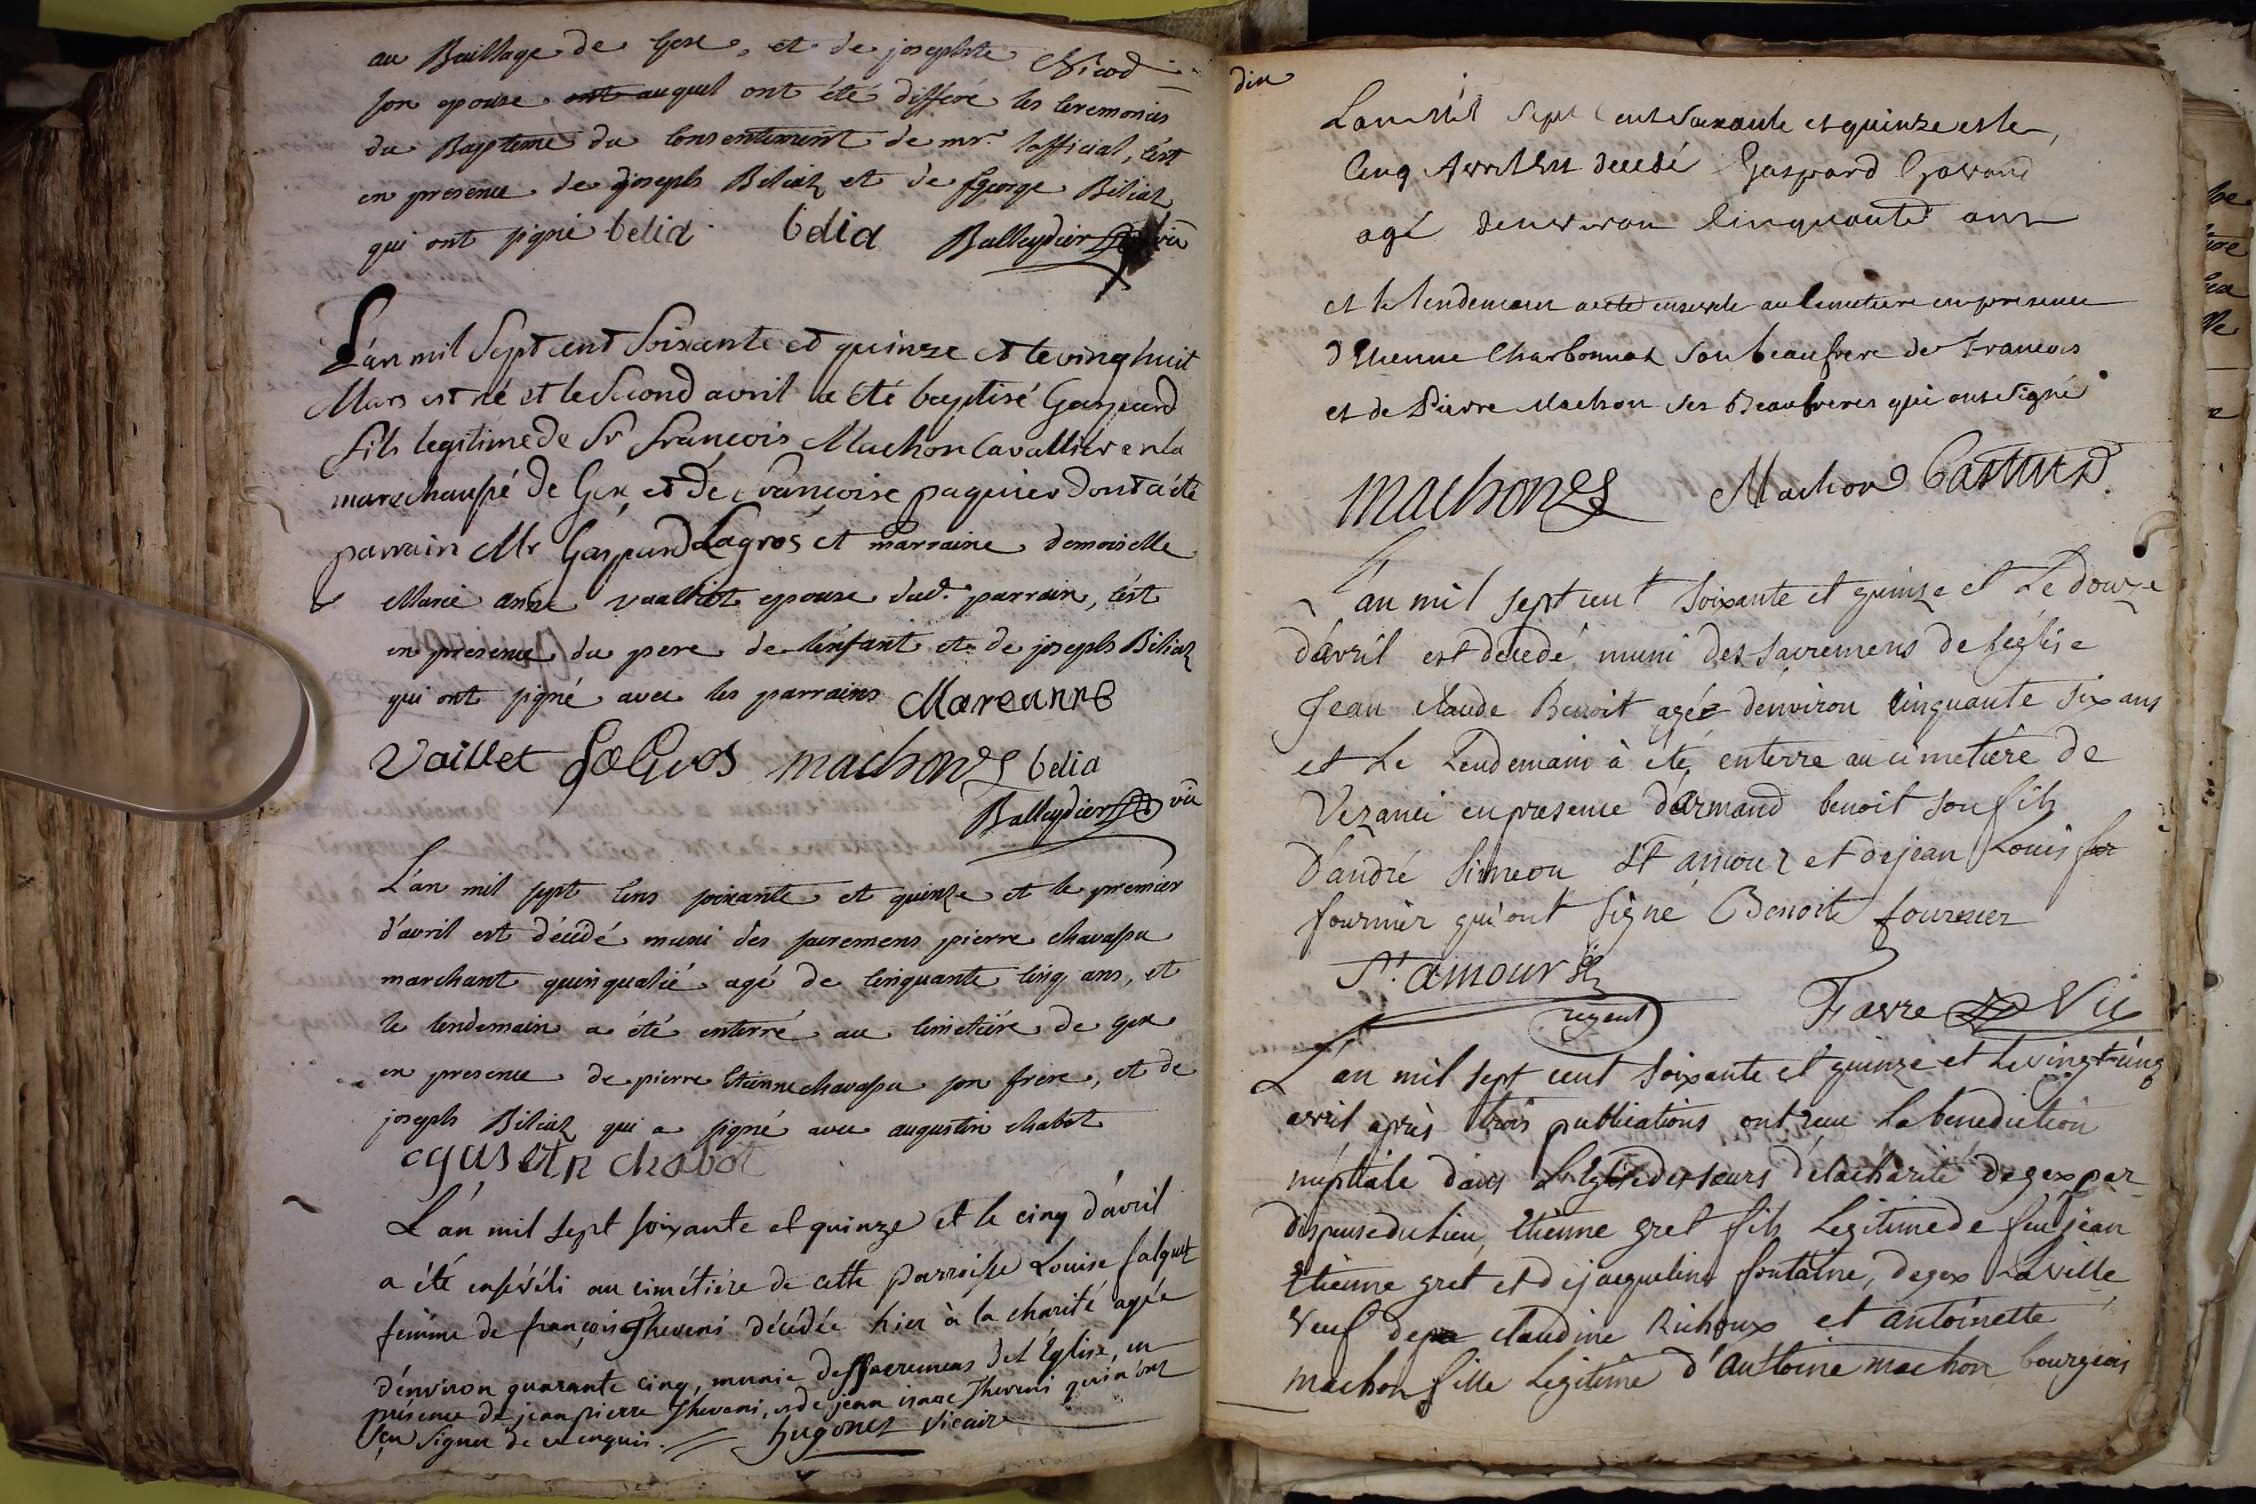 au Baillage de Gex, et de josephte Nicod
son epouse auquel ont été differé les ceremonies
du Bapteme du consentement de mr. l'official, c'est
en presence de joseph Béliaz et de George Béliaz
qui ont signé belia belia Balleydier vic
L'an mil Sept cent Soixante et quinze et le ving huit
Mars est né et le Second avril a été baptisé Gaspard
fils legitime de Sr François Machon Cavallier en la
marechaussé de Gex, et de Françoise paquier dont a été
parrain Mr Gaspard Lagros et marraine demoiselle
Marie anne vualliet epouse dud. parrain, c'est
en presence du pere de l'enfant et de joseph Béliaz
qui ont signé avec les parrains Mareanne
Vaillet LaGros machon belia
Balleydier vic
L'an mil sept cens soixante et quinze et le premier
d'avril est décédé muni des sacremens pierre chavassu
marchant quinqualié agé de cinquante cinq ans, et
le lendemain a été enterré au cimetiére de gex
en presence de pierre Etienne chavassu son frére, et de
joseph Béliaz qui a signé avec augustin chabot
ogustin chabot
L'an mil sept soixante et quinze et le cinq d'avril
a été enséveli au cimétiére de cette parroisse Louise falquet
femme de françois Theveni décédée hier à la charité agée
d'environ quarante cinq, munie des sacremens de l'Église, en
présence de jean pierre Theveni, et de jean isaac Theveni qui n'ont
sçu signer de ce enquis. hugonet vicaire
dix
L'an Mil Sept Cent Soixante et quinze et le
Cinq Avril Est decedé Gaspard Gavand
agé d'environ Cinquante ans
et le lendemain a eté enseveli au Cimetiere en presence
d'Etienne Charbonnat Son beaufrere de Francois
et de Pierre Machon Ses Beaufreres qui ont Signé
machon Machon Castin
L'an mil sept cent soixante et quinze et Le douze
d'avril est décédé muni des sacremens de l'église
Jean claude Benoit agée d'environ cinquante six ans
et Le Lendemain à été enterre au cimetière de
Vezanci en presence d'armand benoit son fils
D'andré Simeon St amour et de jean Louis
fournier qui ont signé Benoit fournier
St. amour
regent Favre Vic
L'an mil sept cent soixante et quinze et Le vingt cinq
avril après trois publications ont reçu La benediction
nuptiale dans L'Eglise des seurs de la charité de gex par
dispense du Lieu, Etienne gret fils Legitime de feu jean
Etienne gret et de jacqueline fontaine, de gex La ville
veuf de claudine Richoux et antoinette
machon fille Legitime d'Antoine machon bourgeois